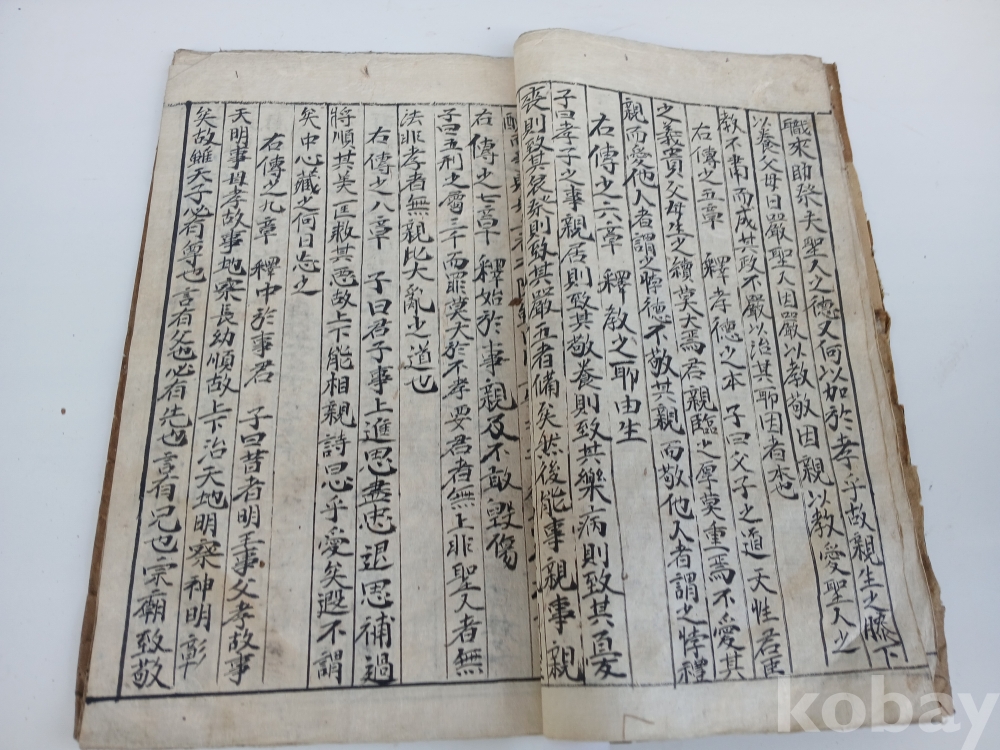 職來助祭夫聖人之德又何以加於孝乎故親生之膝下
以養父母日嚴聖人因嚴以教敬因親以教愛聖人之
教不肅而成其政不嚴以治其所因者本也
右傳之五章 釋孝德之本 子曰父子之道天性君臣
之義貴父母生之續莫大焉君親臨之厚莫重焉不愛其
親而愛他人者謂之悖德不敬其親而敬他人者謂之悖禮
右傳之六章 釋教之所由生
子曰孝子之事親居則致其敬養則致其樂病則致其憂
喪則致其哀祭則致其嚴五者備矣然後能事親事親
右傳之七章 釋始於事親及不敢毀傷
子曰五刑之屬三千而罪莫大於不孝要君者無上非聖人者無
法非孝者無親此大亂之道也
右傳之八章 子曰君子事上進思盡忠退思補過
將順其美匡救其惡故上下能相親詩曰心乎愛矣遐不謂
矣中心藏之何日忘之
右傳之九章 釋中於事君 子曰昔者明王事父孝故事
天明事母孝故事地察長幼順故上下治天地明察神明彰
矣故雖天子必有尊也言有父也必有先也言有兄也宗廟致敬
kobay